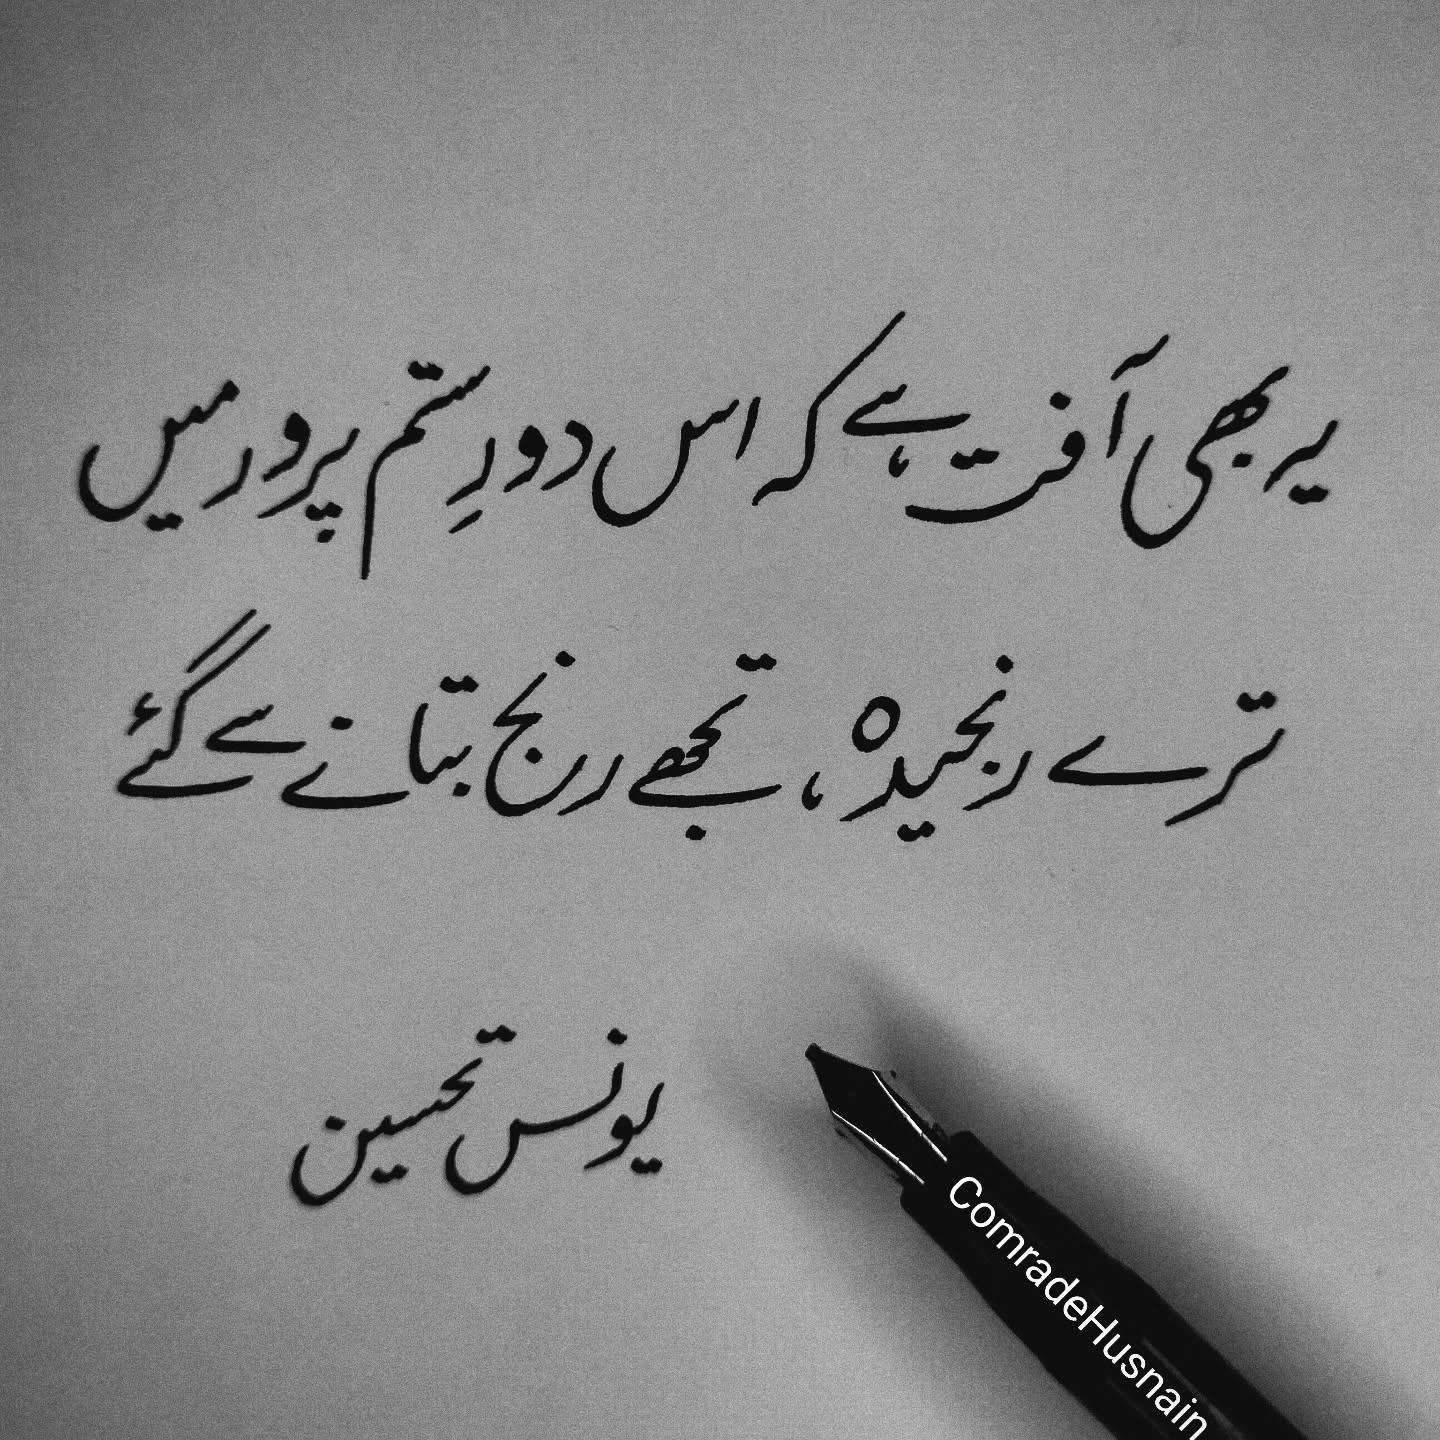 یہ بھی آفت ہے کہ اس دورِ ستم پرور میں
ترے رنجیدہ، تجھے رنج بتانے سے گئے
یونس تحسین
ComradeHusnain